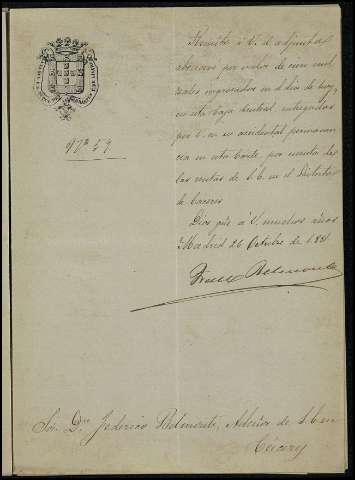 Nº 59
Remito á V. el adjunto
abonaré por valor de cien mil
reales ingresados en el dia de hoy,
en esta Caja Central, entregados
por V. en su accidental permanen
cia en esta Corte, por cuenta de
las rentas de S. E. en el Distrito
de Cáceres
Dios gde á V. muchos años
Madrid 26 Octubre de
Belmonte
Sor. Dn. Federico Belmonte, Admor de S. E. en
Cáceres